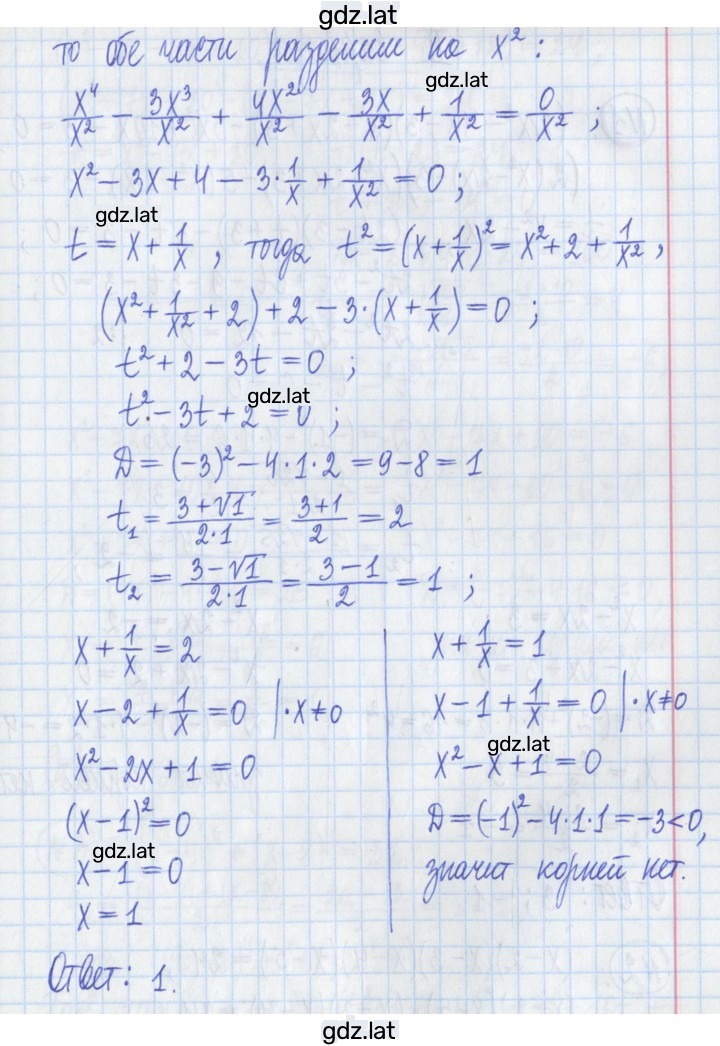 gdz.lat
то обе части разделим на x² :
gdz.lat
x⁴/x² − 3x³/x² + 4x²/x² − 3x/x² + 1/x² = 0/x² ;
x² − 3x + 4 − 3·1/x + 1/x² = 0 ;
gdz.lat
t = x + 1/x , тогда t² = (x + 1/x)² = x² + 2 + 1/x² ,
(x² + 1/x² + 2) + 2 − 3·(x + 1/x) = 0 ;
t² + 2 − 3t = 0 ;
gdz.lat
t² − 3t + 2 = 0 ;
D = (−3)² − 4·1·2 = 9 − 8 = 1
t₁ = (3 + √1)/(2·1) = (3 + 1)/2 = 2
t₂ = (3 − √1)/(2·1) = (3 − 1)/2 = 1 ;
x + 1/x = 2
x − 2 + 1/x = 0 |·x≠0
x² − 2x + 1 = 0
(x − 1)² = 0
gdz.lat
x − 1 = 0
x = 1
x + 1/x = 1
x − 1 + 1/x = 0 |·x≠0
gdz.lat
x² − x + 1 = 0
D = (−1)² − 4·1·1 = −3 < 0,
значит корней нет.
Ответ: 1.
gdz.lat